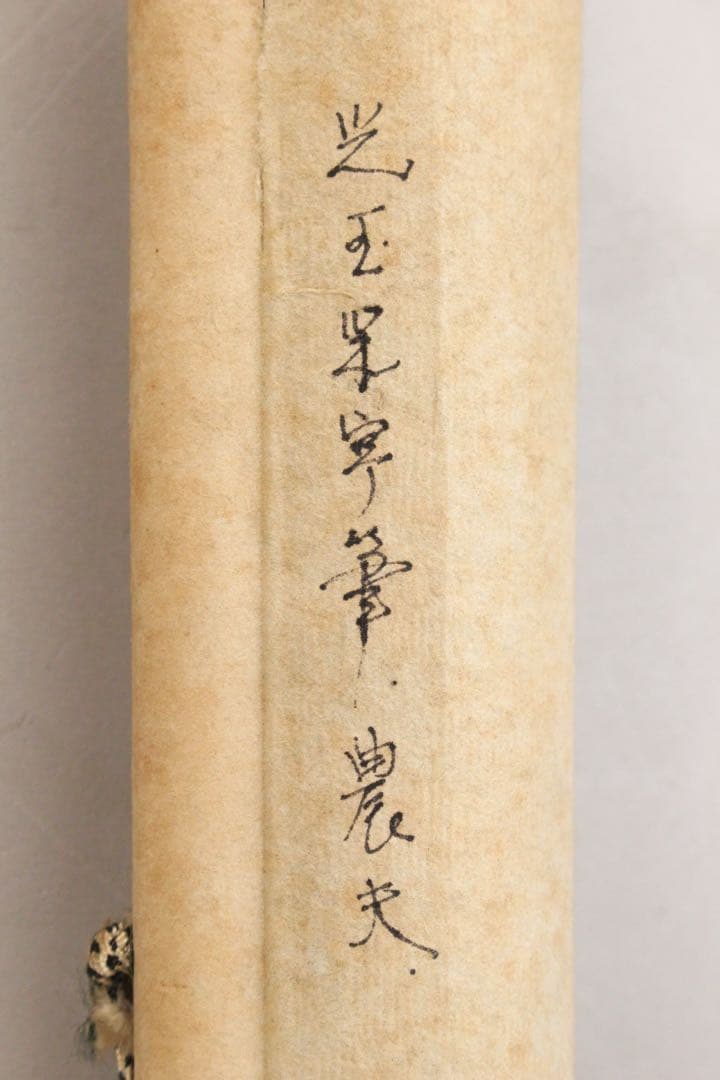 児玉果亭筆.農夫.